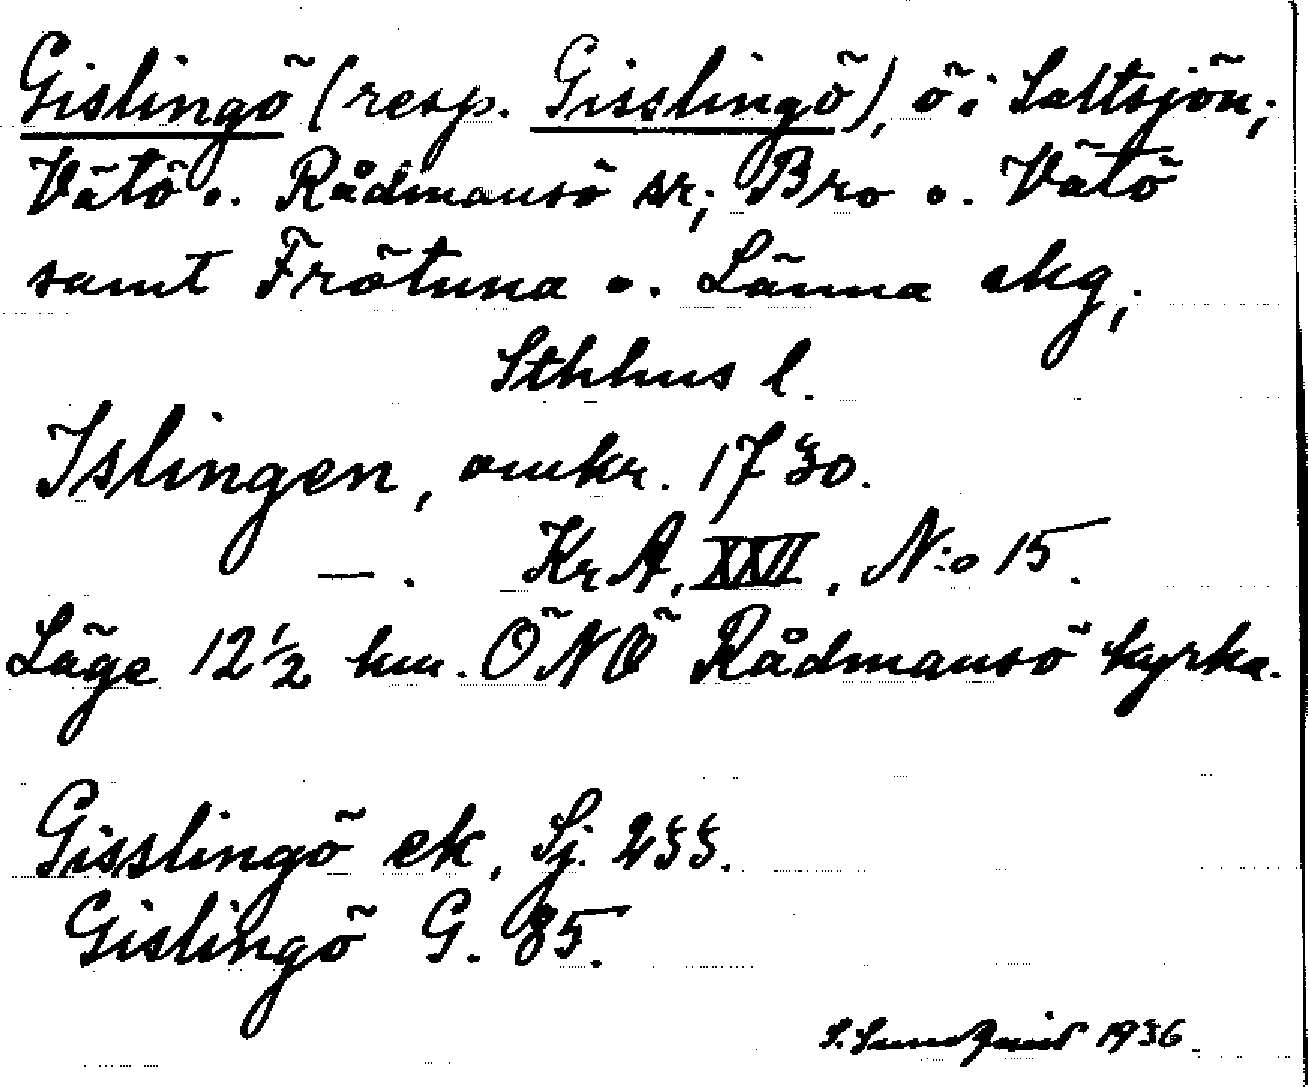 Gislingö (resp. Gisslingö), ö i Saltsjön;
Vätö o. Rådmansö sr; Bro o. Vätö
samt Frötuna o. Länna skg,
Sthlms l.
Islingen, omkr. 1730.
— . KrA, XXII, N:o 15.
Läge 12 1/2 km. ÖNÖ Rådmansö kyrka.
Gisslingö ek, Sj. 233.
Gislingö G. 85.
S. Sundquist 1936.